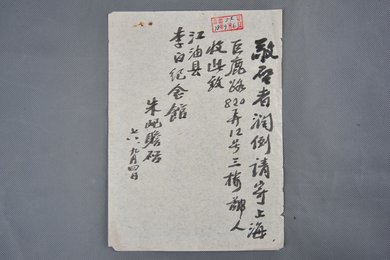 敬启者润例请寄上海
巨鹿路820弄12号三楼部人
收此致
江油县
李白纪念馆
朱屺瞻启
九月四日